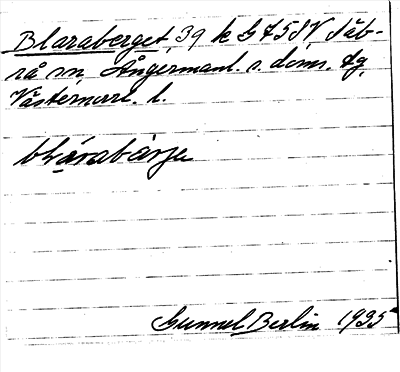 Blaraberget, 39 k G 75 SV, Säb-
rå sn, Ångermanl. s. doms. tg,
Västernorrl. l.
blárabärjə
Gunnel Berlin 1935